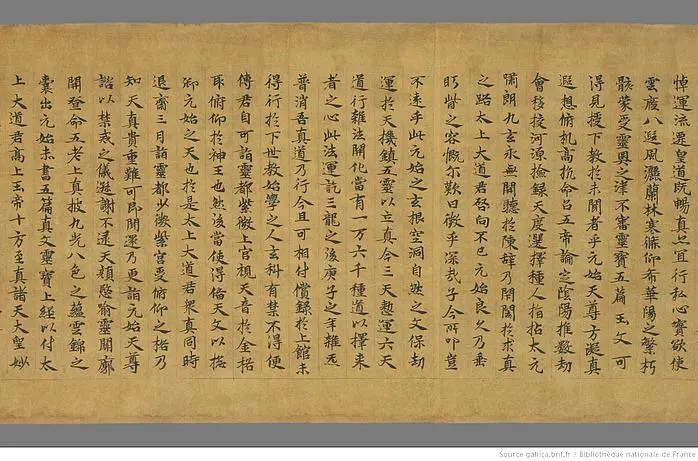 悼運流遷皇道既暢真亡宜行私心寳欲使
雲癊八遐風灑蘭林寒條仰希華陽之繁朽
骸蒙受靈奥之津不審靈寳五篇玉文可
得見授下教於未聞者乎元始天尊方凝真
遐想俯机高抗命召五帝論定陰陽推數劫
會移校河源撿録天度選擇種人指拈太元
嘯朗九玄永無開聽於陳辞乃閉閤於求真
之路太上大道君啓向不已元始良久乃垂
眄眥之容慨尔歎曰微乎深哉子今所叩豈
不遠乎此元始之玄根空洞自然之文保劫
運於天機鎮五靈以立真今三天憩運六天
道行雜法開化當有一万六千種道以擇来
者之心此法運訖三龍之後庚子之年雜炁
普消吾真道乃行今且可相付償録於上館未
得行於下世教始學之人玄科有禁不得便
傳君自可詣靈都紫微上宫視天音於金格
取俯仰於神王也然後當使得俻天文以撘
卿元始之天也於是太上大道君衆真同時
退齋三月詣靈都少微紫宫受俯仰之格乃
知天真貴重難可即聞還乃更詣元始天尊
諮以禁戒之儀遜謝不逮天顔愍喻靈關廓
開登命五老上真披九光八色之蘊雲錦之
囊出元始赤書五篇真文靈寳上経以付太
上大道君髙上玉帝十方至真諸天大聖妙
Source gallica.bnf.fr / Bibliothèque nationale de France